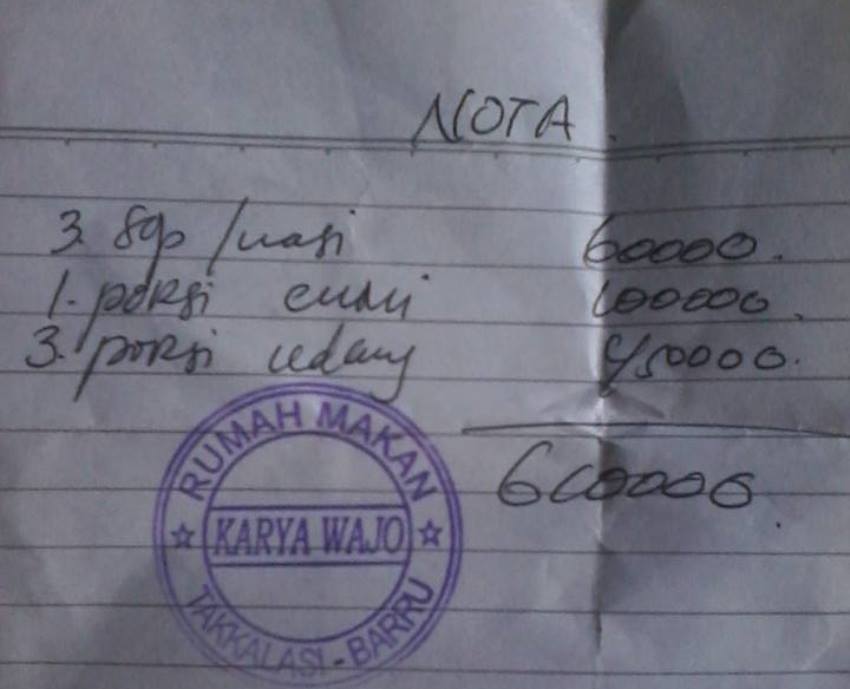 NOTA.
3. sgp/nasi 60000.
1. porsi cumi 100000.
3. porsi udang 450000.
610000.
RUMAH MAKAN
KARYA WAJO
TAKKALASI-BARRU